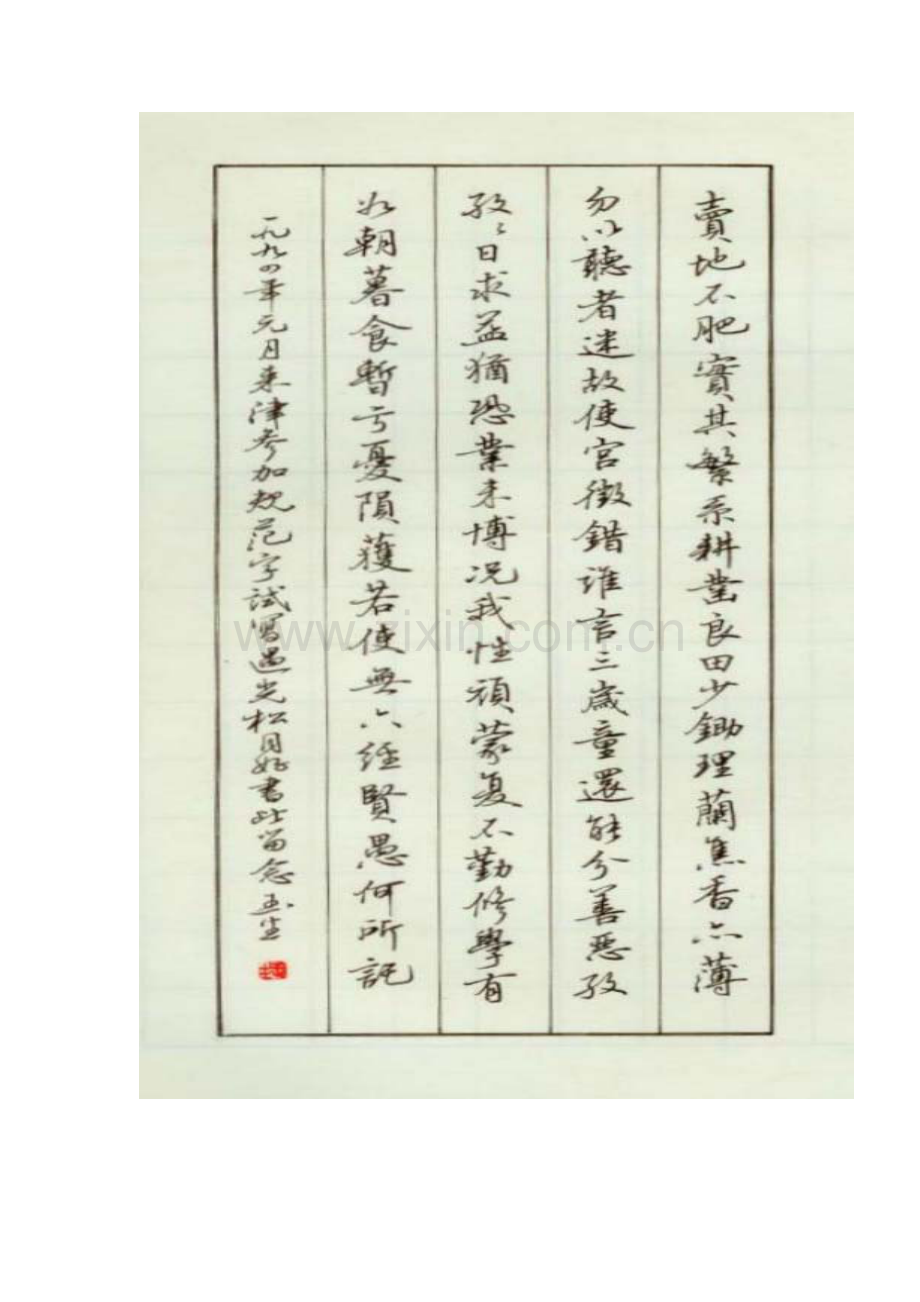 賣地不肥實其繁系耕耋良田少鋤理蘭蕉香亦薄
勿以聽者迷故使宮徵錯誰言三歲童還能分善惡孜
孜々日求益猶恐業未博况我性頑蒙复不勤修學有
如朝暮食暫亏憂隕獲若使無六經賢愚何所託
一九九四年元月来津参加规范字试写遇光松同好書此留念玉生
www.zixin.com.cn